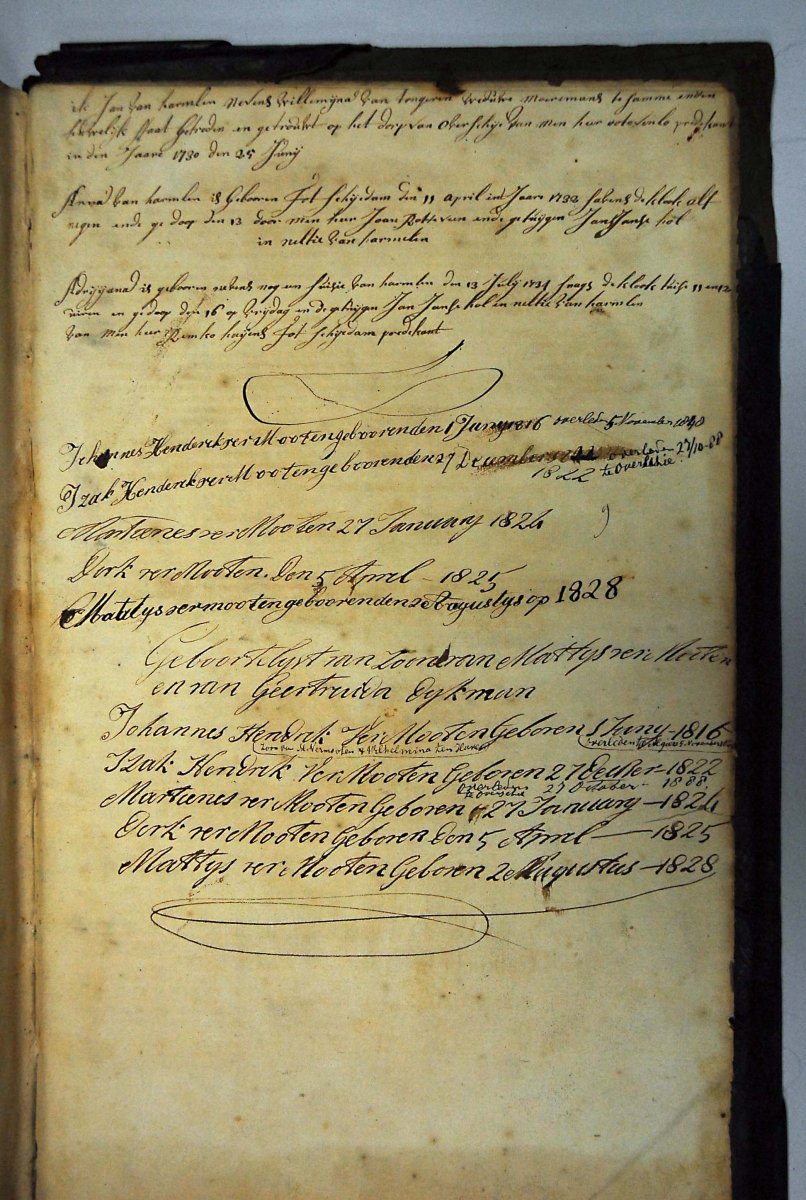 ik Jan van harmelen nevens Willemijna van tongeren weduwe moermans te samen in den
houwelijk staat getreden en getrouwt op het dorp van Oberschije van men heer predikant
in den Jaare 1730 den 25 Junij
Anna van harmelen is gebooren tot schijedam den 11 april in Jaare 1733 savens de klock alf
negen ende ge doop den 13 door men heer Joan ende getuijgen Jan Janse hol
in neltie van harmelen
Adrijana is gebooren nevens nog een van harmelen den 13 Julij 1734 snags de klock tuse 11 en 12
uiren en gedoop den 16 op vrijdag en de getuijgen Jan Janse hol in neltie van harmelen
van men heer tot schijedam predikant
Johannes Henderck ver Mooten gebooren den 1 Juny 1816 overleden 5 November 1840
Izak Henderck ver Mooten gebooren den 27 December 1822 overleden 27/10-88
1822 te Overschie
Martienes ver Mooten 27 January 1824
Dirk ver Mooten. Den 5 April - 1825
Mattys vermooten gebooren den 2 Augustys op 1828
Geboortelyst van Zoone van Mattys ver Mooten
en van Geertruida Dykman
Johannes Hendrik Ver Mooten Geboren 1 Juny - 1816
zoon van M. Vermooten & Wilhelmina ten Haven overleden 5 November
Izak Hendrik Ver Mooten Geboren 27 December - 1822
Overleden 27 October - 1888.
te Overschie
Martienes ver Mooten Geboren 27 January - 1824
Dirk ver Mooten Geboren Den 5 April - 1825
Mattys ver Mooten Geboren 2 Augustus - 1828